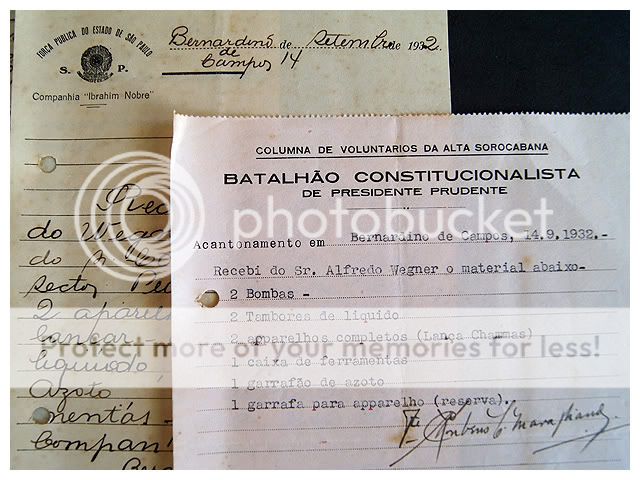 FORÇA PUBLICA DO ESTADO DE SÃO PAULO
S. P.
Bernardino de Setembro de 1932.
de
Campos 14
Companhia "Ibrahim Nobre"
Rec
do Wegn
do
sector
2 aparel
lançar
liquido
Azoto
mentas -
Compan
COLUMNA DE VOLUNTARIOS DA ALTA SOROCABANA
BATALHÃO CONSTITUCIONALISTA
DE PRESIDENTE PRUDENTE
Acantonamento em Bernardino de Campos, 14.9.1932.-
Recebi do Sr. Alfredo Wegner o material abaixo-
2 Bombas -
2 Tambores de liquido
2 apparelhos completos (Lança Chammas)
1 caixa de ferramentas
1 garrafão de azoto
1 garrafa para apparelho (reserva).
photobucket
Protect more of your memories for less!